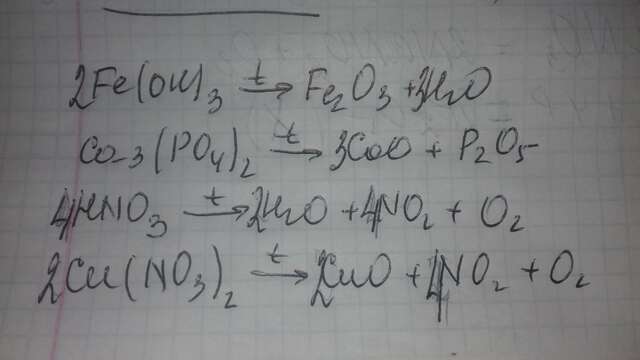 2Fe(OH)3 t→ Fe2O3 + 3H2O
Co3(PO4)2 t→ 3CoO + P2O5
4HNO3 t→ 2H2O + 4NO2 + O2
2Cu(NO3)2 t→ 2CuO + 4NO2 + O2